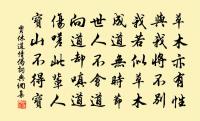 草木亦有性
與我將不別
我若似草木
成道無時節
世人不會道
向道卻嗔道
傷嗟此輩人
寶山不得寶
貫休道情偈詞典網集